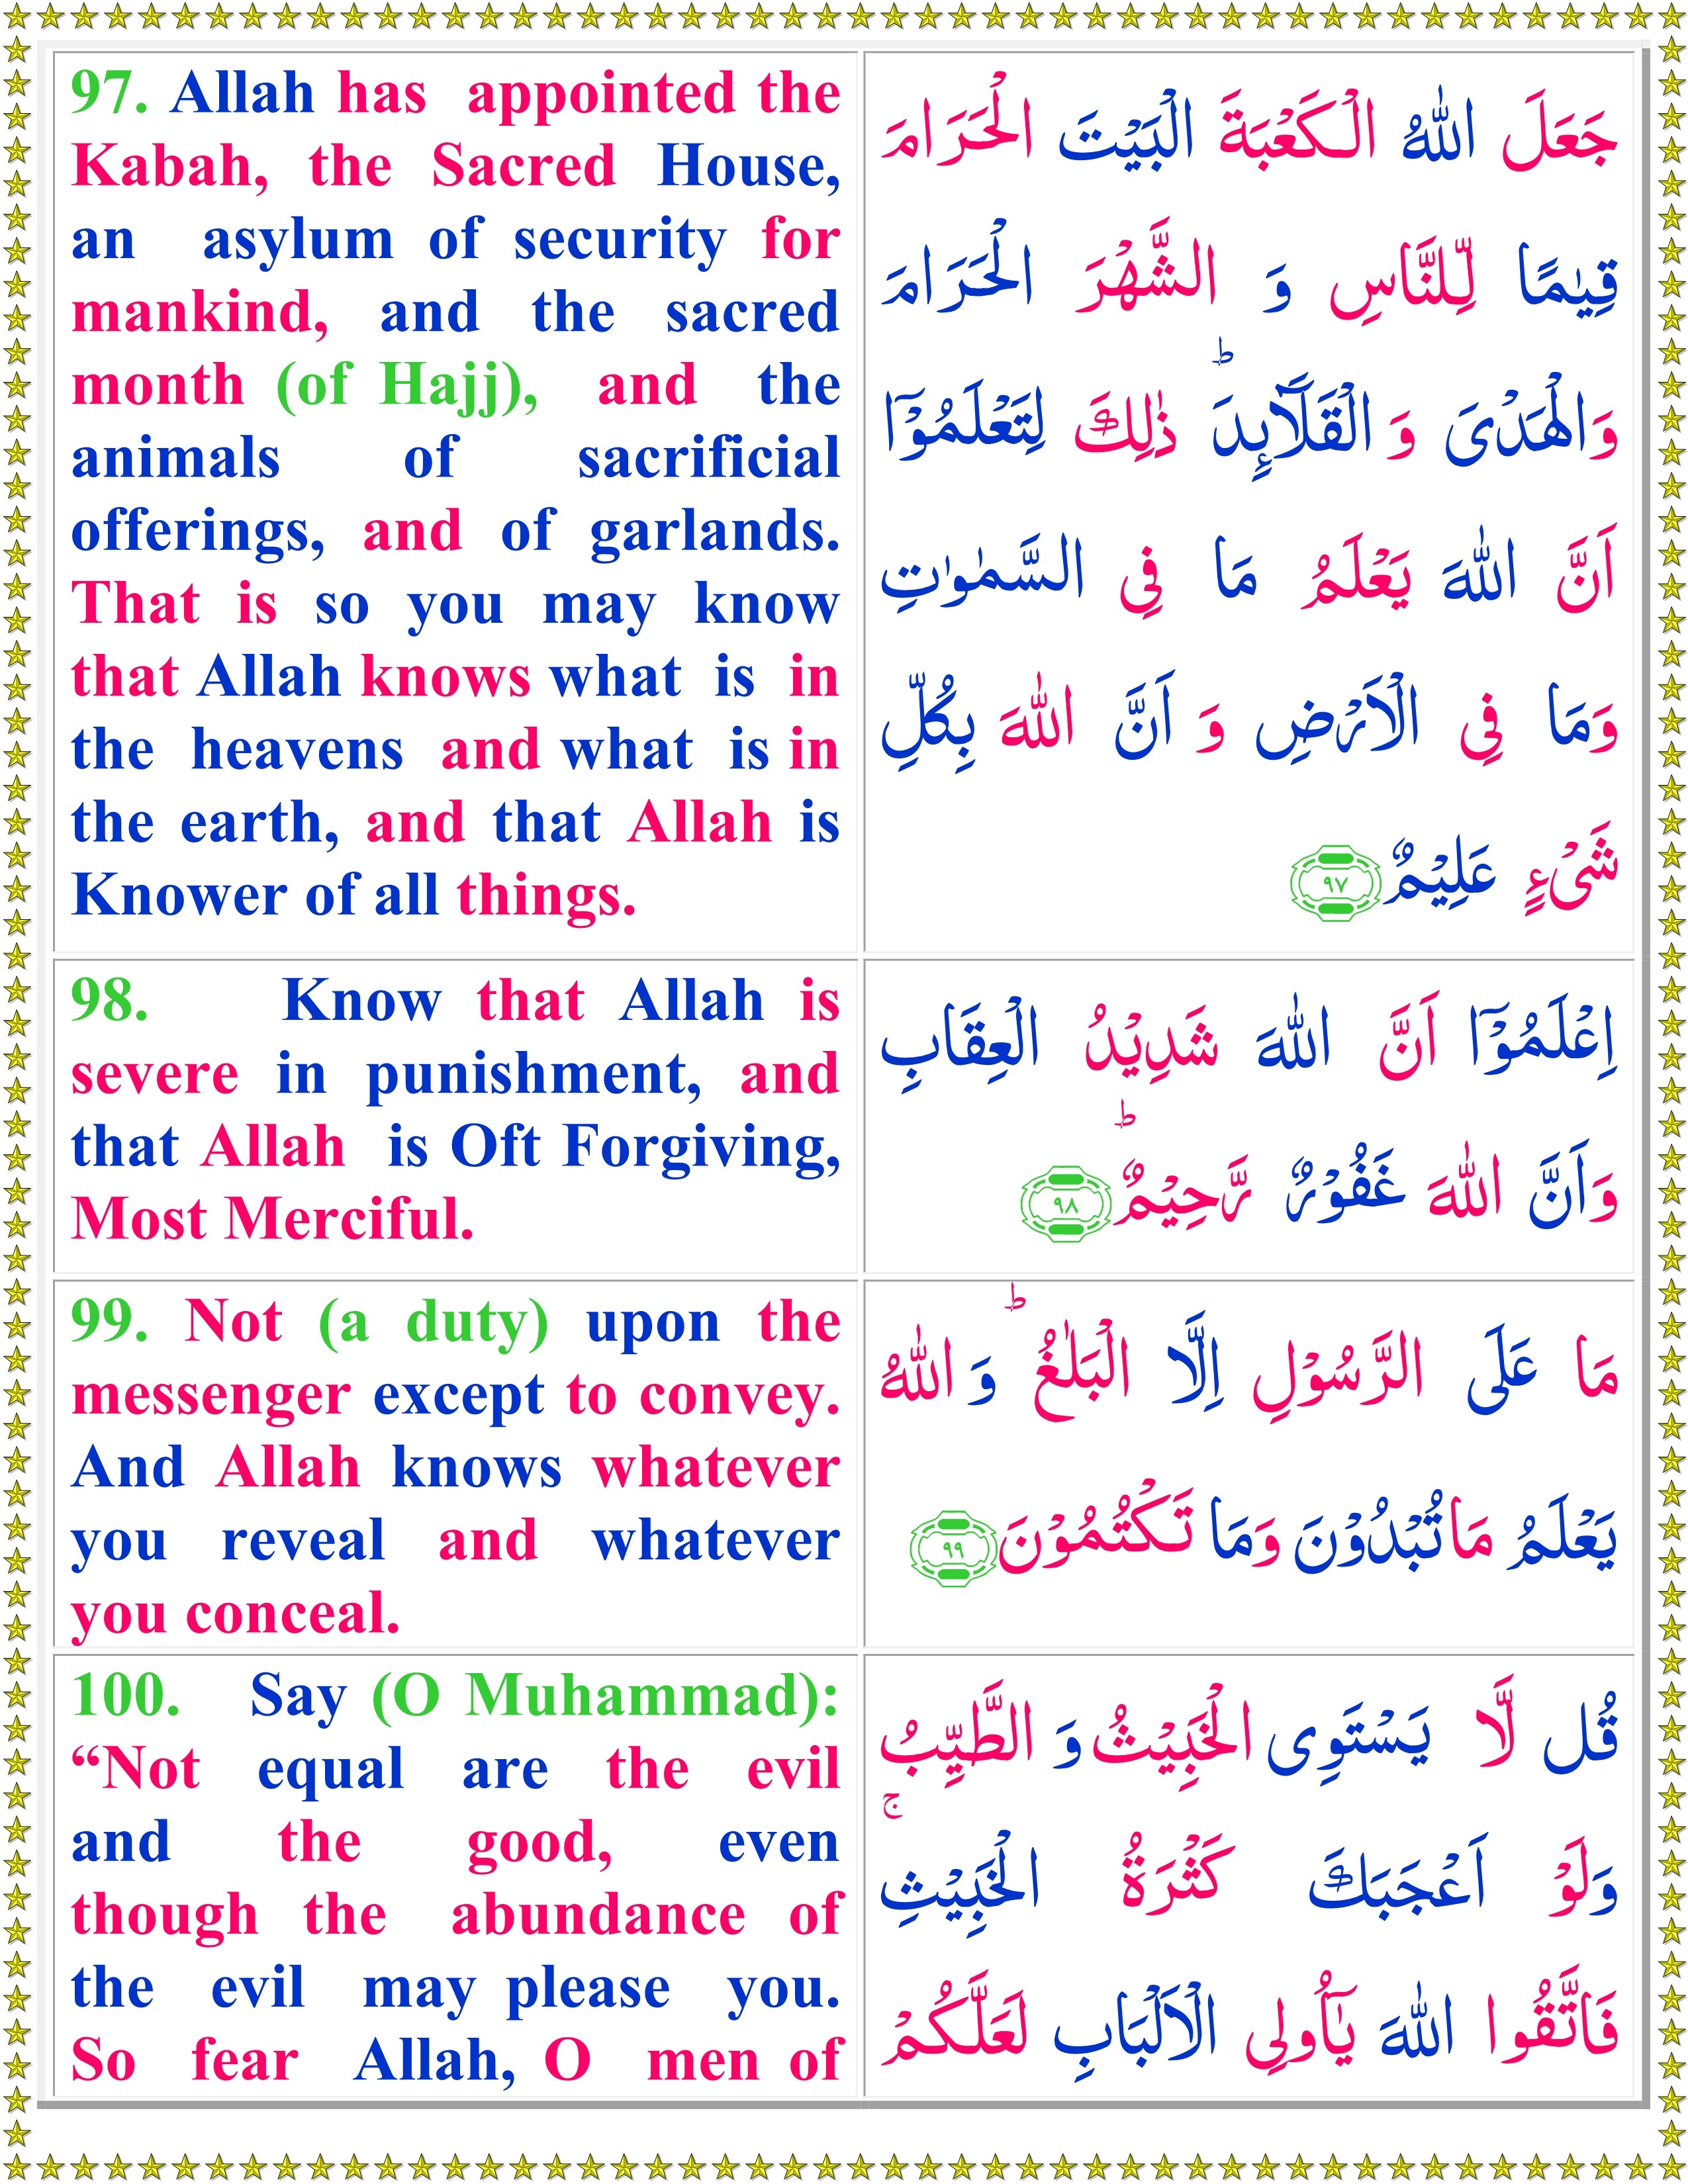 97. Allah has appointed the
Kabah, the Sacred House,
an asylum of security for
mankind, and the sacred
month (of Hajj), and the
animals of sacrificial
offerings, and of garlands.
That is so you may know
that Allah knows what is in
the heavens and what is in
the earth, and that Allah is
Knower of all things.
جَعَلَ اللّٰهُ الْـكَعْبَةَ الْبَيْتَ الْحَرَامَ
قِيٰمًا لِّـلنَّاسِ وَ الشَّهْرَ الْحَرَامَ
وَالْهَدْىَ وَ الْقَلَآٮِٕدَ‌ ؕ ذٰ لِكَ لِتَعْلَمُوْۤا
اَنَّ اللّٰهَ يَعْلَمُ مَا فِى السَّمٰوٰتِ
وَمَا فِى الْاَرْضِ وَ اَنَّ اللّٰهَ بِكُلِّ
شَىْءٍ عَلِيْمٌ ﴿۹۷﴾
98. Know that Allah is
severe in punishment, and
that Allah is Oft Forgiving,
Most Merciful.
اِعْلَمُوْۤا اَنَّ اللّٰهَ شَدِيْدُ الْعِقَابِ
وَاَنَّ اللّٰهَ غَفُوْرٌ رَّحِيْمٌ ؕ ﴿۹۸﴾
99. Not (a duty) upon the
messenger except to convey.
And Allah knows whatever
you reveal and whatever
you conceal.
مَا عَلَى الرَّسُوْلِ اِلَّا الْبَلٰغُ‌ ؕ وَ اللّٰهُ
يَعْلَمُ مَا تُبْدُوْنَ وَمَا تَكْتُمُوْنَ ﴿۹۹﴾
100. Say (O Muhammad):
“Not equal are the evil
and the good, even
though the abundance of
the evil may please you.
So fear Allah, O men of
قُل لَّا يَسْتَوِى الْخَبِيْثُ وَ الطَّيِّبُ
وَلَوْ اَعْجَبَكَ كَثْرَةُ الْخَبِيْثِ‌ ۚ
فَاتَّقُوا اللّٰهَ يٰۤاُولِى الْاَلْبَابِ لَعَلَّكُمْ